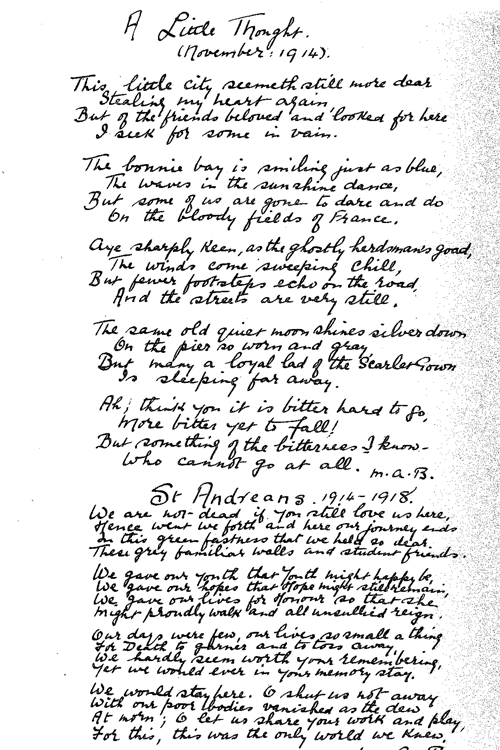 A Little Thought.
(November: 1914).
This, little city seemeth still more dear
Stealing my heart again,
But of the friends beloved and looked for here
I seek for some in vain.
The bonnie bay is smiling just as blue,
The waves in the sunshine dance,
But some of us are gone to dare and do
On the bloody fields of France.
Aye sharply keen, as the ghostly herdsman's goad,
The winds come sweeping chill,
But fewer footsteps echo on the road,
And the streets are very still.
The same old quiet moon shines silver down
On the pier so worn and gray
But many a loyal lad of the Scarlet Gown
Is sleeping far away.
Ah; think you it is bitter hard to go,
More bitter yet to fall!
But something of the bitterness I know-
Who cannot go at all. M.A.B.
St Andreans. 1914-1918.
We are not dead if you still love us here,
Hence went we forth and here our journey ends
In this green fastness that we held so dear.
These grey familiar walls and student friends.
We gave our Youth that Youth might happy be,
We gave our hopes that Hope might still remain,
We gave our lives for Honour so that she
Might proudly walk and all unsullied reign.
Our days were few, our lives so small a thing
For Death to garner and to toss away,
We hardly seem worth your remembering,
Yet we would ever in your memory stay.
We would stay here. O shut us not away
With our poor bodies vanished as the dew
At morn; O let us share your work and play,
For this, this was the only world we knew.